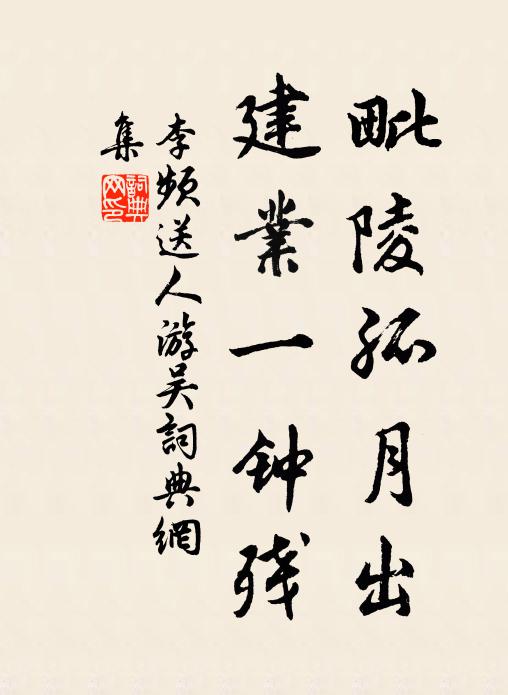 毗陵孤月出
建業一钟残
李频送人游吴詞典網
集
詞典
网印